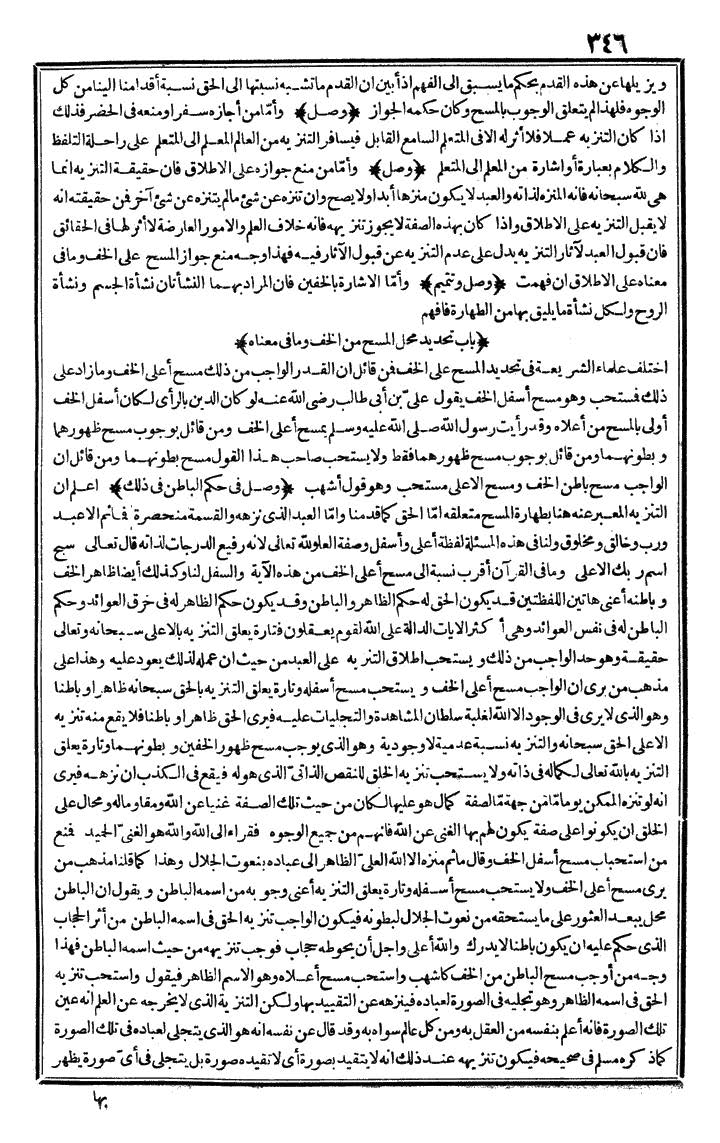 ٣٤٦
ويزيلها عن هذه القدم بحكم ما يسبق الى الفهم اذ أبين ان القدم ما تشبه نسبتها الى الحق نسبة أقدامنا الينا من كل
الوجوه فلهذا لم يتعلق الوجوب بالمسح وكان حكمه الجواز ﴿وصل﴾ وأمّا من أجازه سفرا ومنعه فى الحضر فذلك
اذا كان التنزيه عملا فلا أثر له الا فى المتعلم السامع القابل فيسافر التنزيه من العالم المعلم الى المتعلم على راحلة التلفظ
والكلام بعبارة أو اشارة من المعلم الى المتعلم ﴿وصل﴾ وأمّا من منع جوازه على الاطلاق فان حقيقة التنزيه انما
هى لله سبحانه فانه المنزه لذاته والعبد لا يكون منزها أبدا ولا يصح وان تنزه عن شئ ما لم يتنزه عن شئ آخر فمن حقيقته انه
لا يقبل التنزيه على الاطلاق واذا كان بهذه الصفة لا يجوز تنزيهه فانه خلاف العلم والامور العارضة لا أثر لها فى الحقائق
فان قبول العبد لآثار التنزيه يدل على عدم التنزيه عن قبول الآثار فيه فهذا وجه منع جواز المسح على الخف وما فى
معناه على الاطلاق ان فهمت ﴿وصل وتتميم﴾ وأمّا الاشارة بالخفين فان المراد بهما النشأتان نشأة الجسم ونشأة
الروح ولكل نشأة ما يليق بها من الطهارة فافهم
﴿باب تحديد محل المسح من الخف وما فى معناه﴾
اختلف علماء الشريعة فى تحديد المسح على الخف فمن قائل ان القدر الواجب من ذلك مسح أعلى الخف وما زاد على
ذلك فمستحب وهو مسح أسفل الخف يقول علىّ بن أبى طالب رضى الله عنه لو كان الدين بالرأى لكان أسفل الخف
أولى بالمسح من أعلاه وقد رأيت رسول الله صلى الله عليه وسلم يمسح أعلى الخف ومن قائل بوجوب مسح ظهورهما
وبطونهما ومن قائل بوجوب مسح ظهورهما فقط ولا يستحب صاحب هذا القول مسح بطونهما ومن قائل ان
الواجب مسح باطن الخف ومسح الاعلى مستحب وهو قول أشهب ﴿وصل فى حكم الباطن فى ذلك﴾ اعلم ان
التنزيه المعبر عنه هنا بطهارة المسح متعلقه امّا الحق كما قدمنا وامّا العبد الذى نزهه والقسمة منحصرة فما ثم الا عبد
ورب وخالق ومخلوق ولنا فى هذه المسئلة لفظة أعلى وأسفل وصفة العلو لله تعالى لانه رفيع الدرجات لذاته قال تعالى سبح
اسم ربك الاعلى وما فى القرآن أقرب نسبة الى مسح أعلى الخف من هذه الآية والسفل لنا وكذلك أيضا ظاهر الخف
وباطنه أعنى هاتين اللفظتين قد يكون الحق له حكم الظاهر والباطن وقد يكون حكم الظاهر له فى خرق العوائد وحكم
الباطن له فى نفس العوائد وهى أكثر الايات الدالة على الله لقوم يعقلون فتارة يعلق التنزيه بالاعلى سبحانه وتعالى
حقيقة وهو حد الواجب من ذلك ويستحب اطلاق التنزيه على العبد من حيث ان عمله لذلك يعود عليه وهذا على
مذهب من يرى ان الواجب مسح أعلى الخف ويستحب مسح أسفله وتارة يعلق التنزيه بالحق سبحانه ظاهرا وباطنا
وهو الذى لا يرى فى الوجود الا الله لغلبة سلطان المشاهدة والتجليات عليه فيرى الحق ظاهرا وباطنا فلا يقع منه تنزيه
الا على الحق سبحانه والتنزيه نسبة عدمية لا وجودية وهو الذى يوجب مسح ظهور الخفين وبطونهما وتارة يعلق
التنزيه بالله تعالى لكماله فى ذاته ولا يستحب تنزيه الخلق للنقص الذاتىّ الذى هو له فيقع فى الكذب ان نزهه فيرى
انه لو تنزه الممكن يوما مّا من جهة مّا لصفة كمال هو عليها لكان من حيث تلك الصفة غنيا عن الله ومقاوما له ومحال على
الخلق ان يكونوا على صفة يكون لهم بها الغنى عن الله فانهم من جميع الوجوه فقراء الى الله والله هو الغنىّ الحميد فمنع
من استحباب مسح أسفل الخف وقال ما ثم منزه الا الله العلىّ الظاهر الى عباده بنعوت الجلال وهذا كما قلنا مذهب من
يرى مسح أعلى الخف ولا يستحب مسح أسفله وتارة يعلق التنزيه أعنى وجوبه من اسمه الباطن ويقول ان الباطن
محل يبعد العثور على ما يستحقه من نعوت الجلال لبطونه فيكون الواجب تنزيه الحق فى اسمه الباطن من أثر الحجاب
الذى حكم عليه ان يكون باطنا لا يدرك والله أعلى واجل أن يحوطه حجاب فوجب تنزيهه من حيث اسمه الباطن فهذا
وجه من أوجب مسح الباطن من الخف كاشهب واستحب مسح أعلاه وهو الاسم الظاهر فيقول واستحب تنزيه
الحق فى اسمه الظاهر وهو تجليه فى الصورة لعباده فينزهه عن التقييد بها ولكن التنزية الذى لا يخرجه عن العلم انه عين
تلك الصورة فانه أعلم بنفسه من العقل به ومن كل عالم سواه به وقد قال عن نفسه انه هو الذى يتجلى لعباده فى تلك الصورة
كما ذكره مسلم فى صحيحه فيكون تنزيهه عند ذلك انه لا يتقيد بصورة أى لا تقيده صورة بل يتجلى فى أىّ صورة يظهر
بها